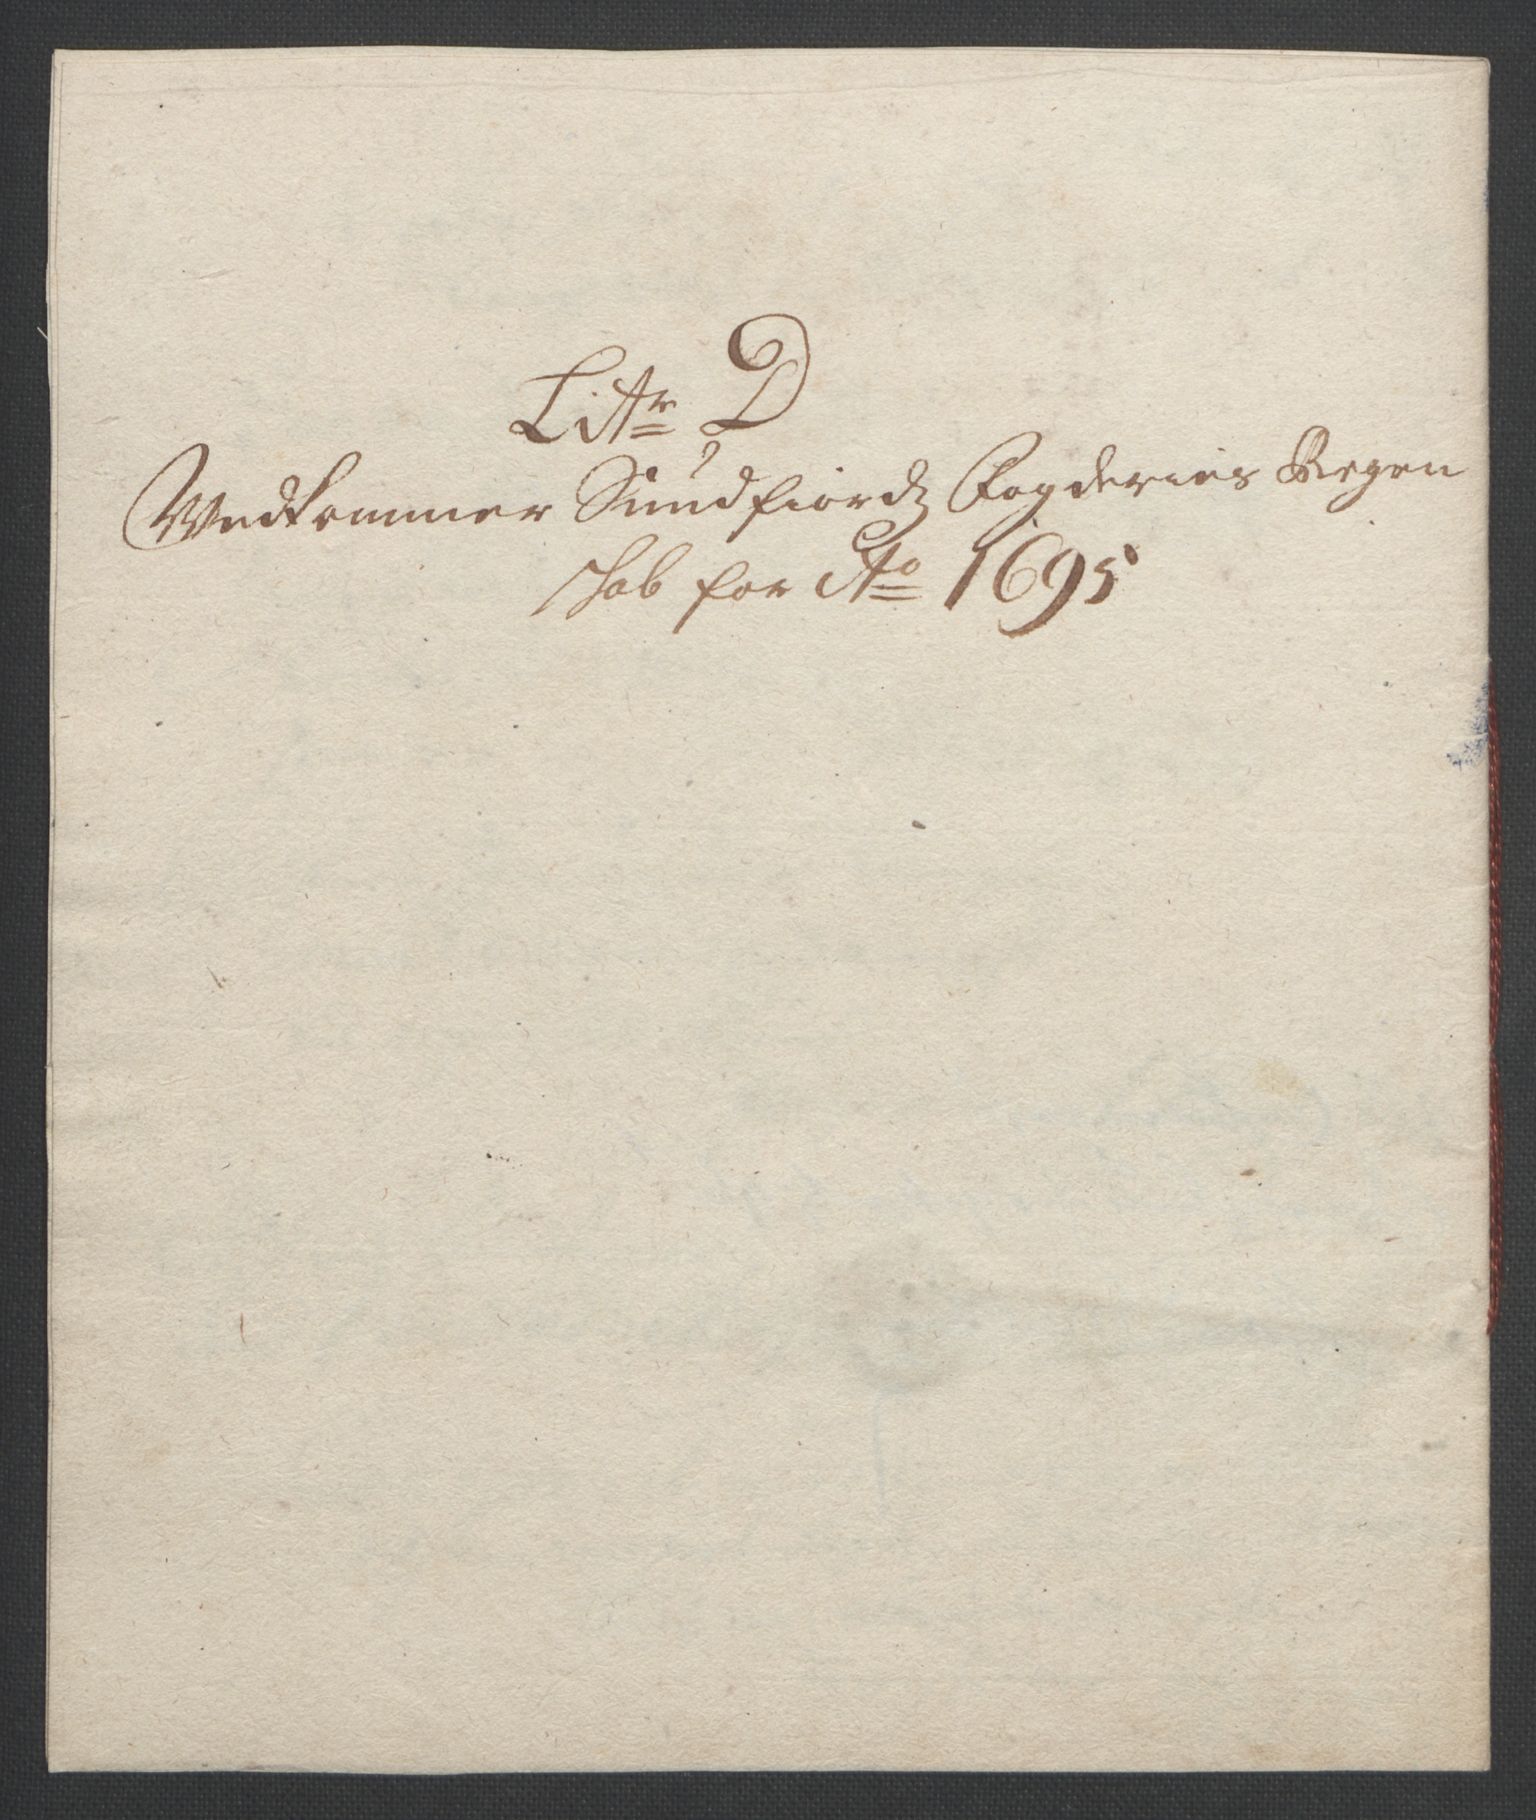 Litr D
Vedkommer Sundfiordz Fogderies Regen
schab for Ao 1695